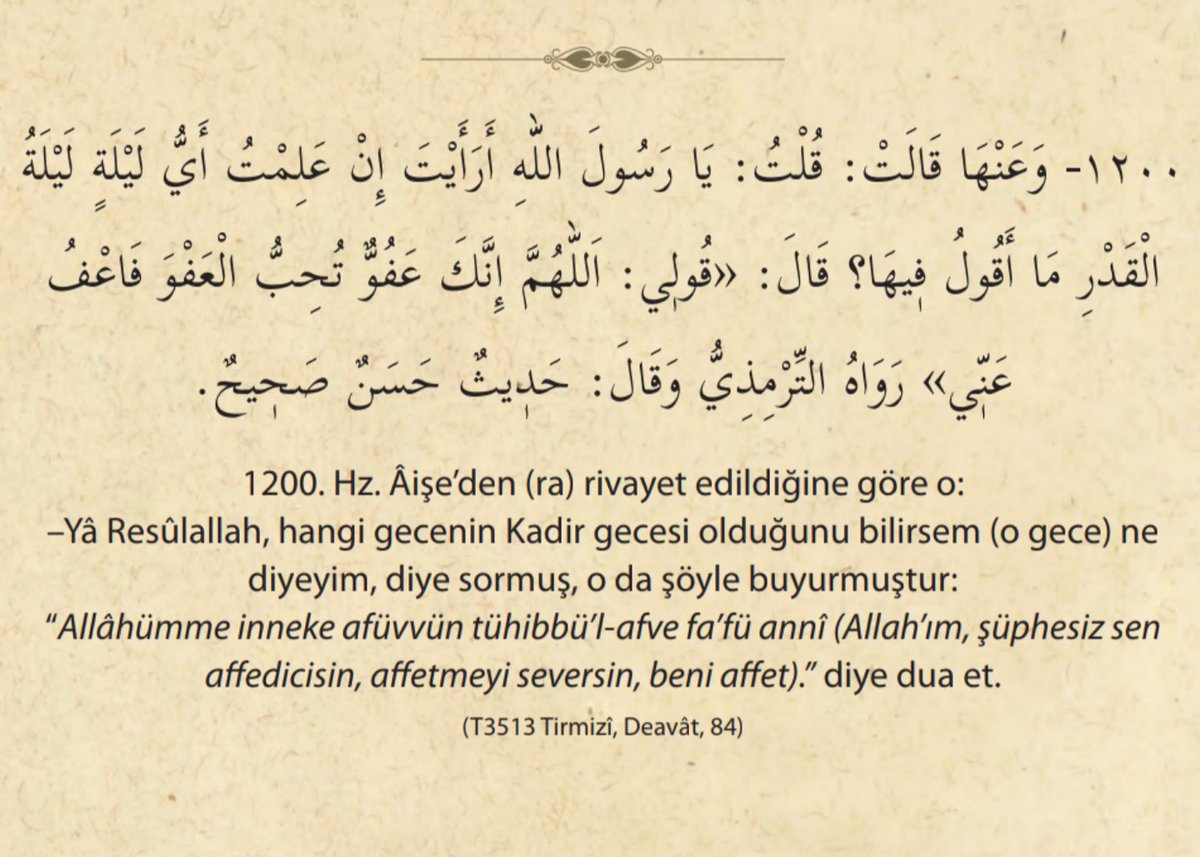 ١٢٠٠- وَعَنْهَا قَالَتْ: قُلْتُ: يَا رَسُولَ اللّٰهِ أَرَأَيْتَ إِنْ عَلِمْتُ أَيُّ لَيْلَةٍ لَيْلَةُ
الْقَدْرِ مَا أَقُولُ فِيهَا؟ قَالَ: «قُولِي: اَللّٰهُمَّ إِنَّكَ عَفُوٌّ تُحِبُّ الْعَفْوَ فَاعْفُ
عَنِّي» رَوَاهُ التِّرْمِذِيُّ وَقَالَ: حَدِيثٌ حَسَنٌ صَحِيحٌ.
1200. Hz. Âişe’den (ra) rivayet edildiğine göre o:
–Yâ Resûlallah, hangi gecenin Kadir gecesi olduğunu bilirsem (o gece) ne
diyeyim, diye sormuş, o da şöyle buyurmuştur:
“Allâhümme inneke afüvvün tühibbü’l-afve fa’fü annî (Allah’ım, şüphesiz sen
affedicisin, affetmeyi seversin, beni affet).” diye dua et.
(T3513 Tirmizî, Deavât, 84)